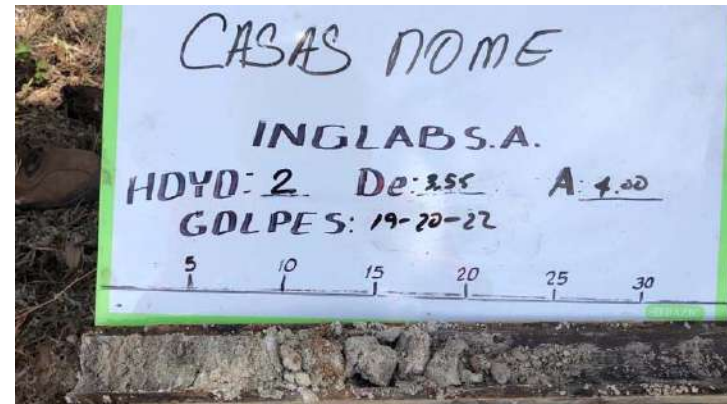 CASAS NOME
INGLAB S.A.
HOYO: 2 De: 3.55 A: 4.00
GOLPES: 19-20-22
5 10 15 20 25 30